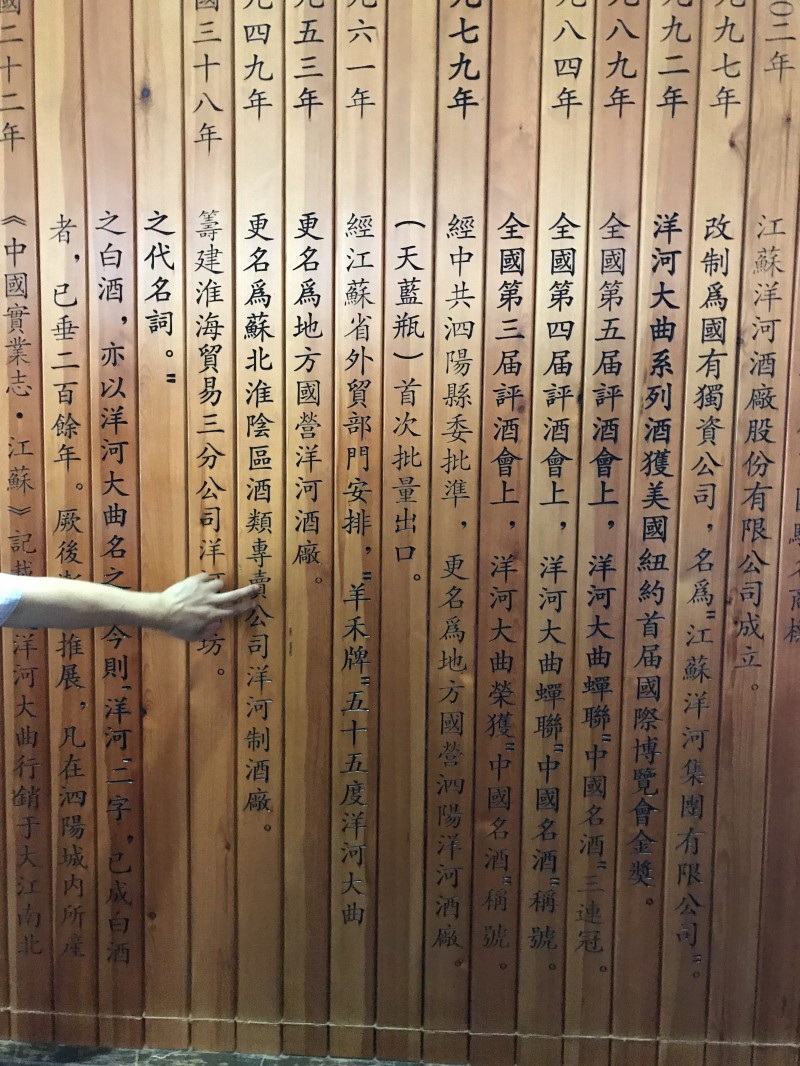 國二十二年
《中國實業志·江蘇》記載 洋河大曲行銷于大江南北
者，已垂二百餘年。厥後 推展，凡在泗陽城內所產
之白酒，亦以洋河大曲名之 今則"洋河"二字，已成白酒
之代名詞。"
國三十八年
籌建淮海貿易三分公司洋 坊。
九四九年
更名爲蘇北淮陰區酒類專賣公司洋河制酒廠。
九五三年
更名爲地方國營洋河酒廠。
九六一年
經江蘇省外貿部門安排，"羊禾牌"五十五度洋河大曲
（天藍瓶）首次批量出口。
九七九年
經中共泗陽縣委批準，更名爲地方國營泗陽洋河酒廠。
全國第三届評酒會上，洋河大曲榮獲"中國名酒"稱號。
九八四年
全國第四届評酒會上，洋河大曲蟬聯"中國名酒"稱號。
九八九年
全國第五届評酒會上，洋河大曲蟬聯"中國名酒"三連冠。
九九二年
洋河大曲系列酒獲美國紐約首届國際博覽會金獎。
九九七年
改制爲國有獨資公司，名爲"江蘇洋河集團有限公司"。
〇二年
江蘇洋河酒廠股份有限公司成立。